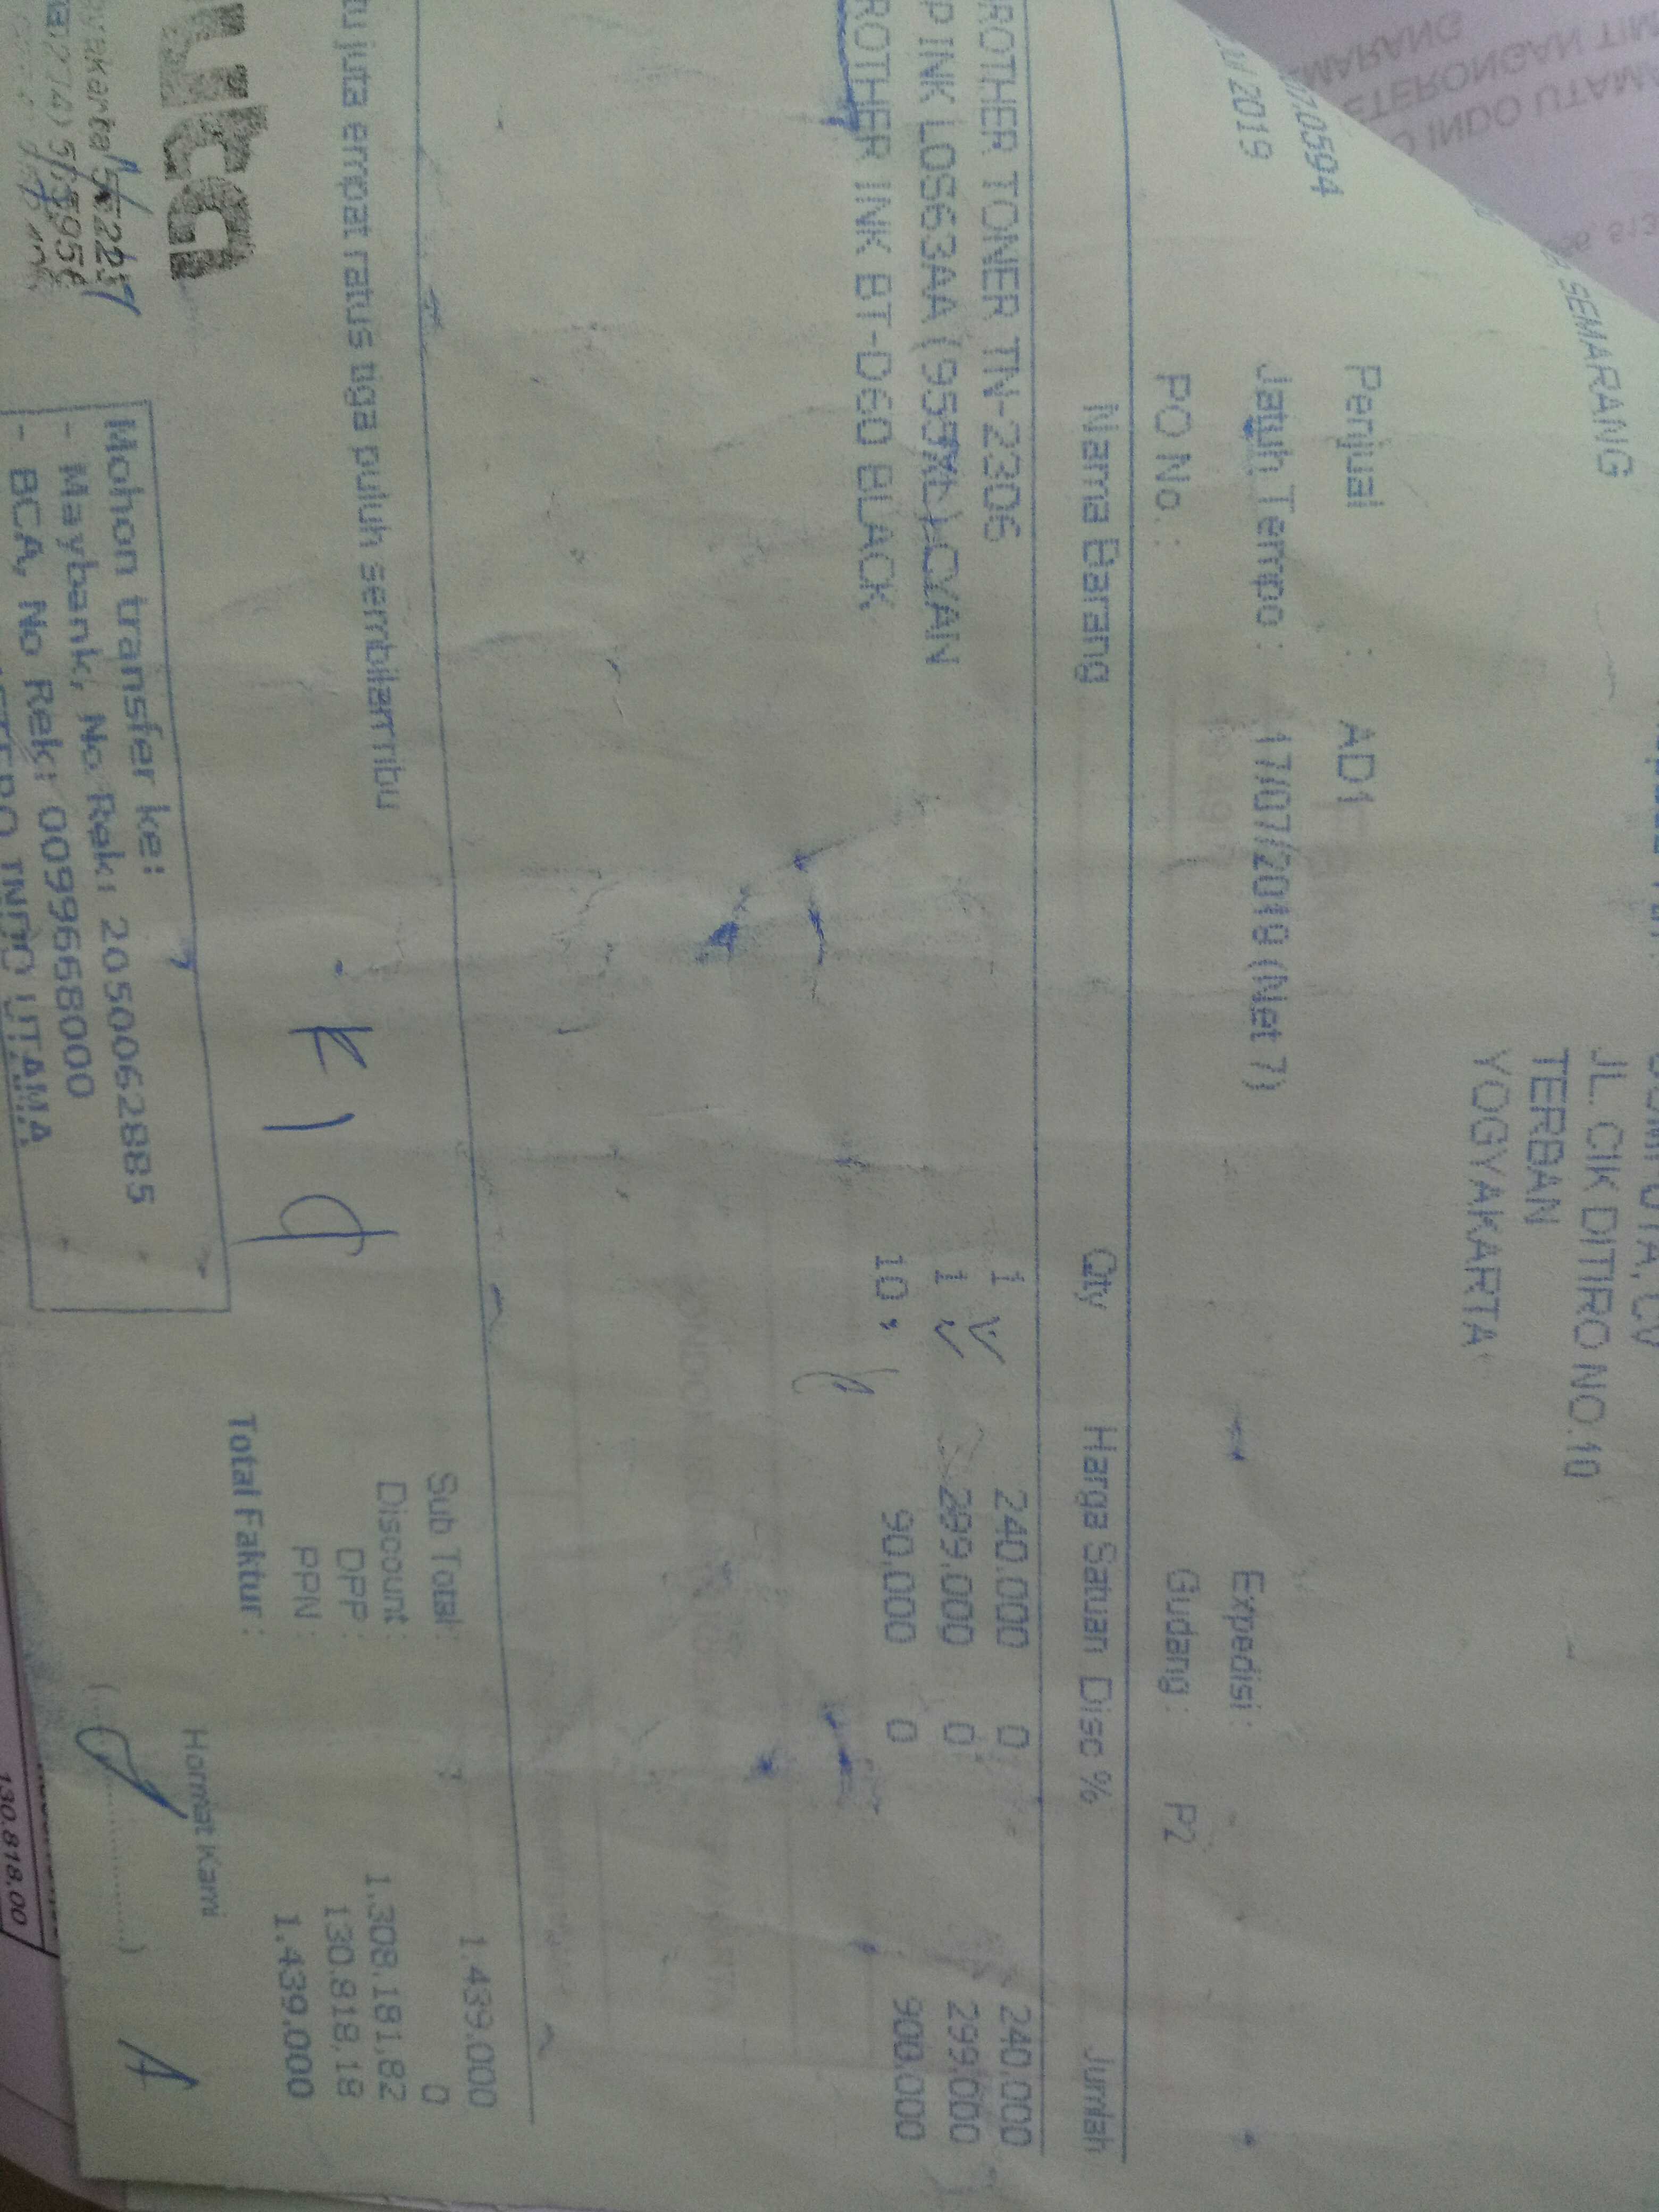 SEMARANG
JL. CIK DITIRO NO.10
TERBAN
YOGYAKARTA
Penjual : AD1
2019
Jatuh Tempo : 17/07/2019 (Net 7)
Expedisi :
PO No. :
Gudang : P2
Nama Barang Qty Harga Satuan Disc % Jumlah
ROTHER TONER TN-2306 1 240.000 0 240.000
P INK LOS63AA (955XL) CYAN 1 299.000 0 299.000
ROTHER INK BT-D60 BLACK 10 90.000 0 900.000
tu juta empat ratus tiga puluh sembilan ribu
Sub Total : 1.439.000
Discount : 0
DPP : 1.308.181,82
PPN : 130.818,18
Total Faktur : 1.439.000
Mohon transfer ke:
- Maybank, No Rek: 2050062885
- BCA, No Rek: 0099668000
INDO UTAMA
Hormat Kami
130.818.00
INDO UTAMA
ETERONGAN TIM
MARANG